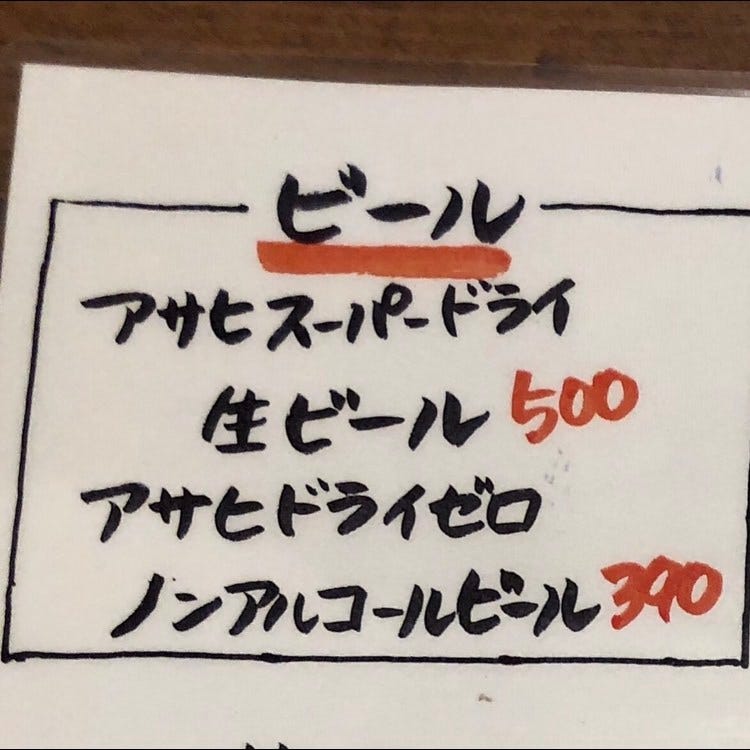 ビール
アサヒスーパードライ
生ビール 500
アサヒドライゼロ
ノンアルコールビール 390